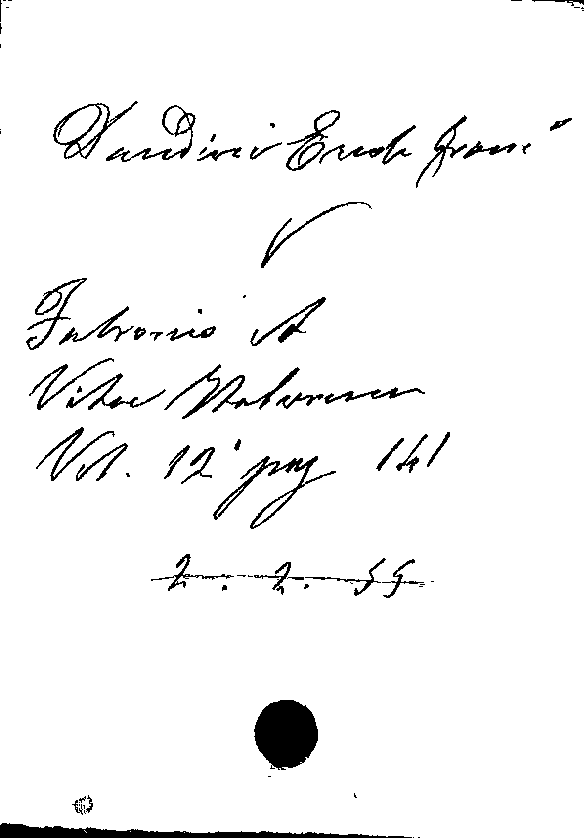 Dandini Ercole Franc°
V
Fabronio A
Vitae Italorum
Vol. 12° pag 141
2. 2. 55